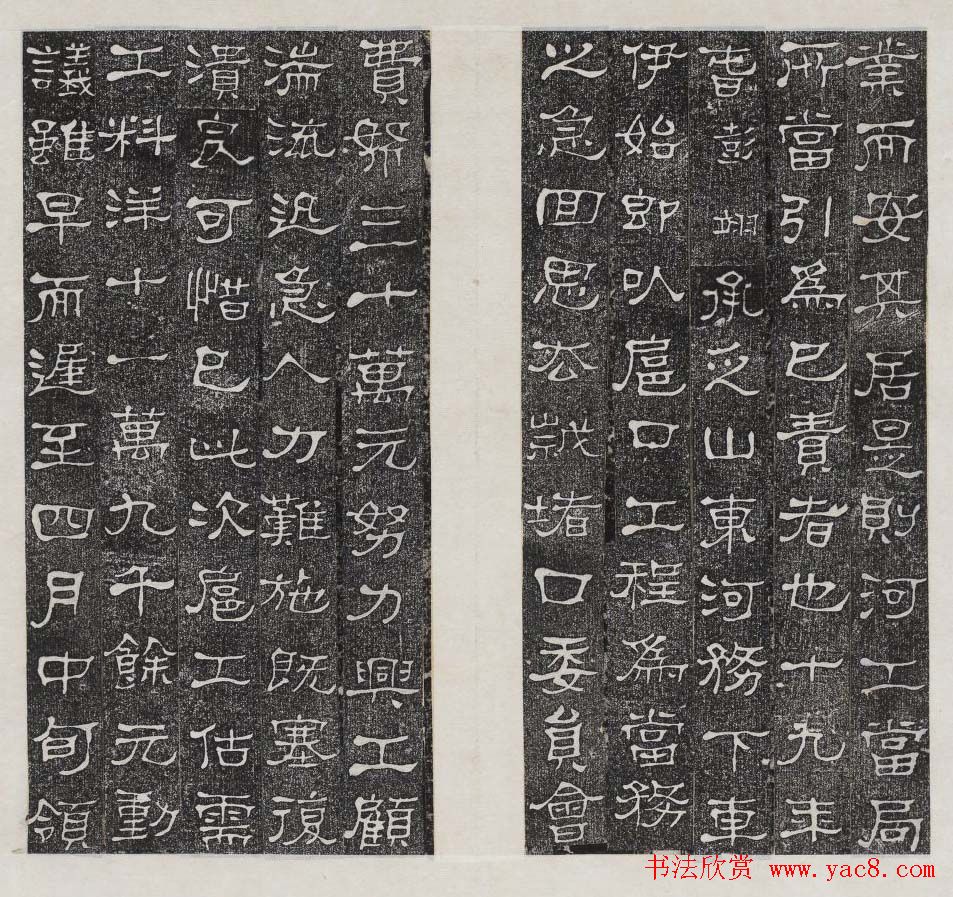 業而安其居是則河工當局
所當引為己責者也十九年
春彭翊承乏山東河務下車
伊始即以扈口工程為當務
之急回思去歲堵口委員會
費帑三十萬元努力興工顧
湍流迅急人力難施既塞復
潰良可惜已此次扈工估需
工料洋十一萬九千餘元動
議雖早而遲至四月中旬領
书法欣赏 www.yac8.com